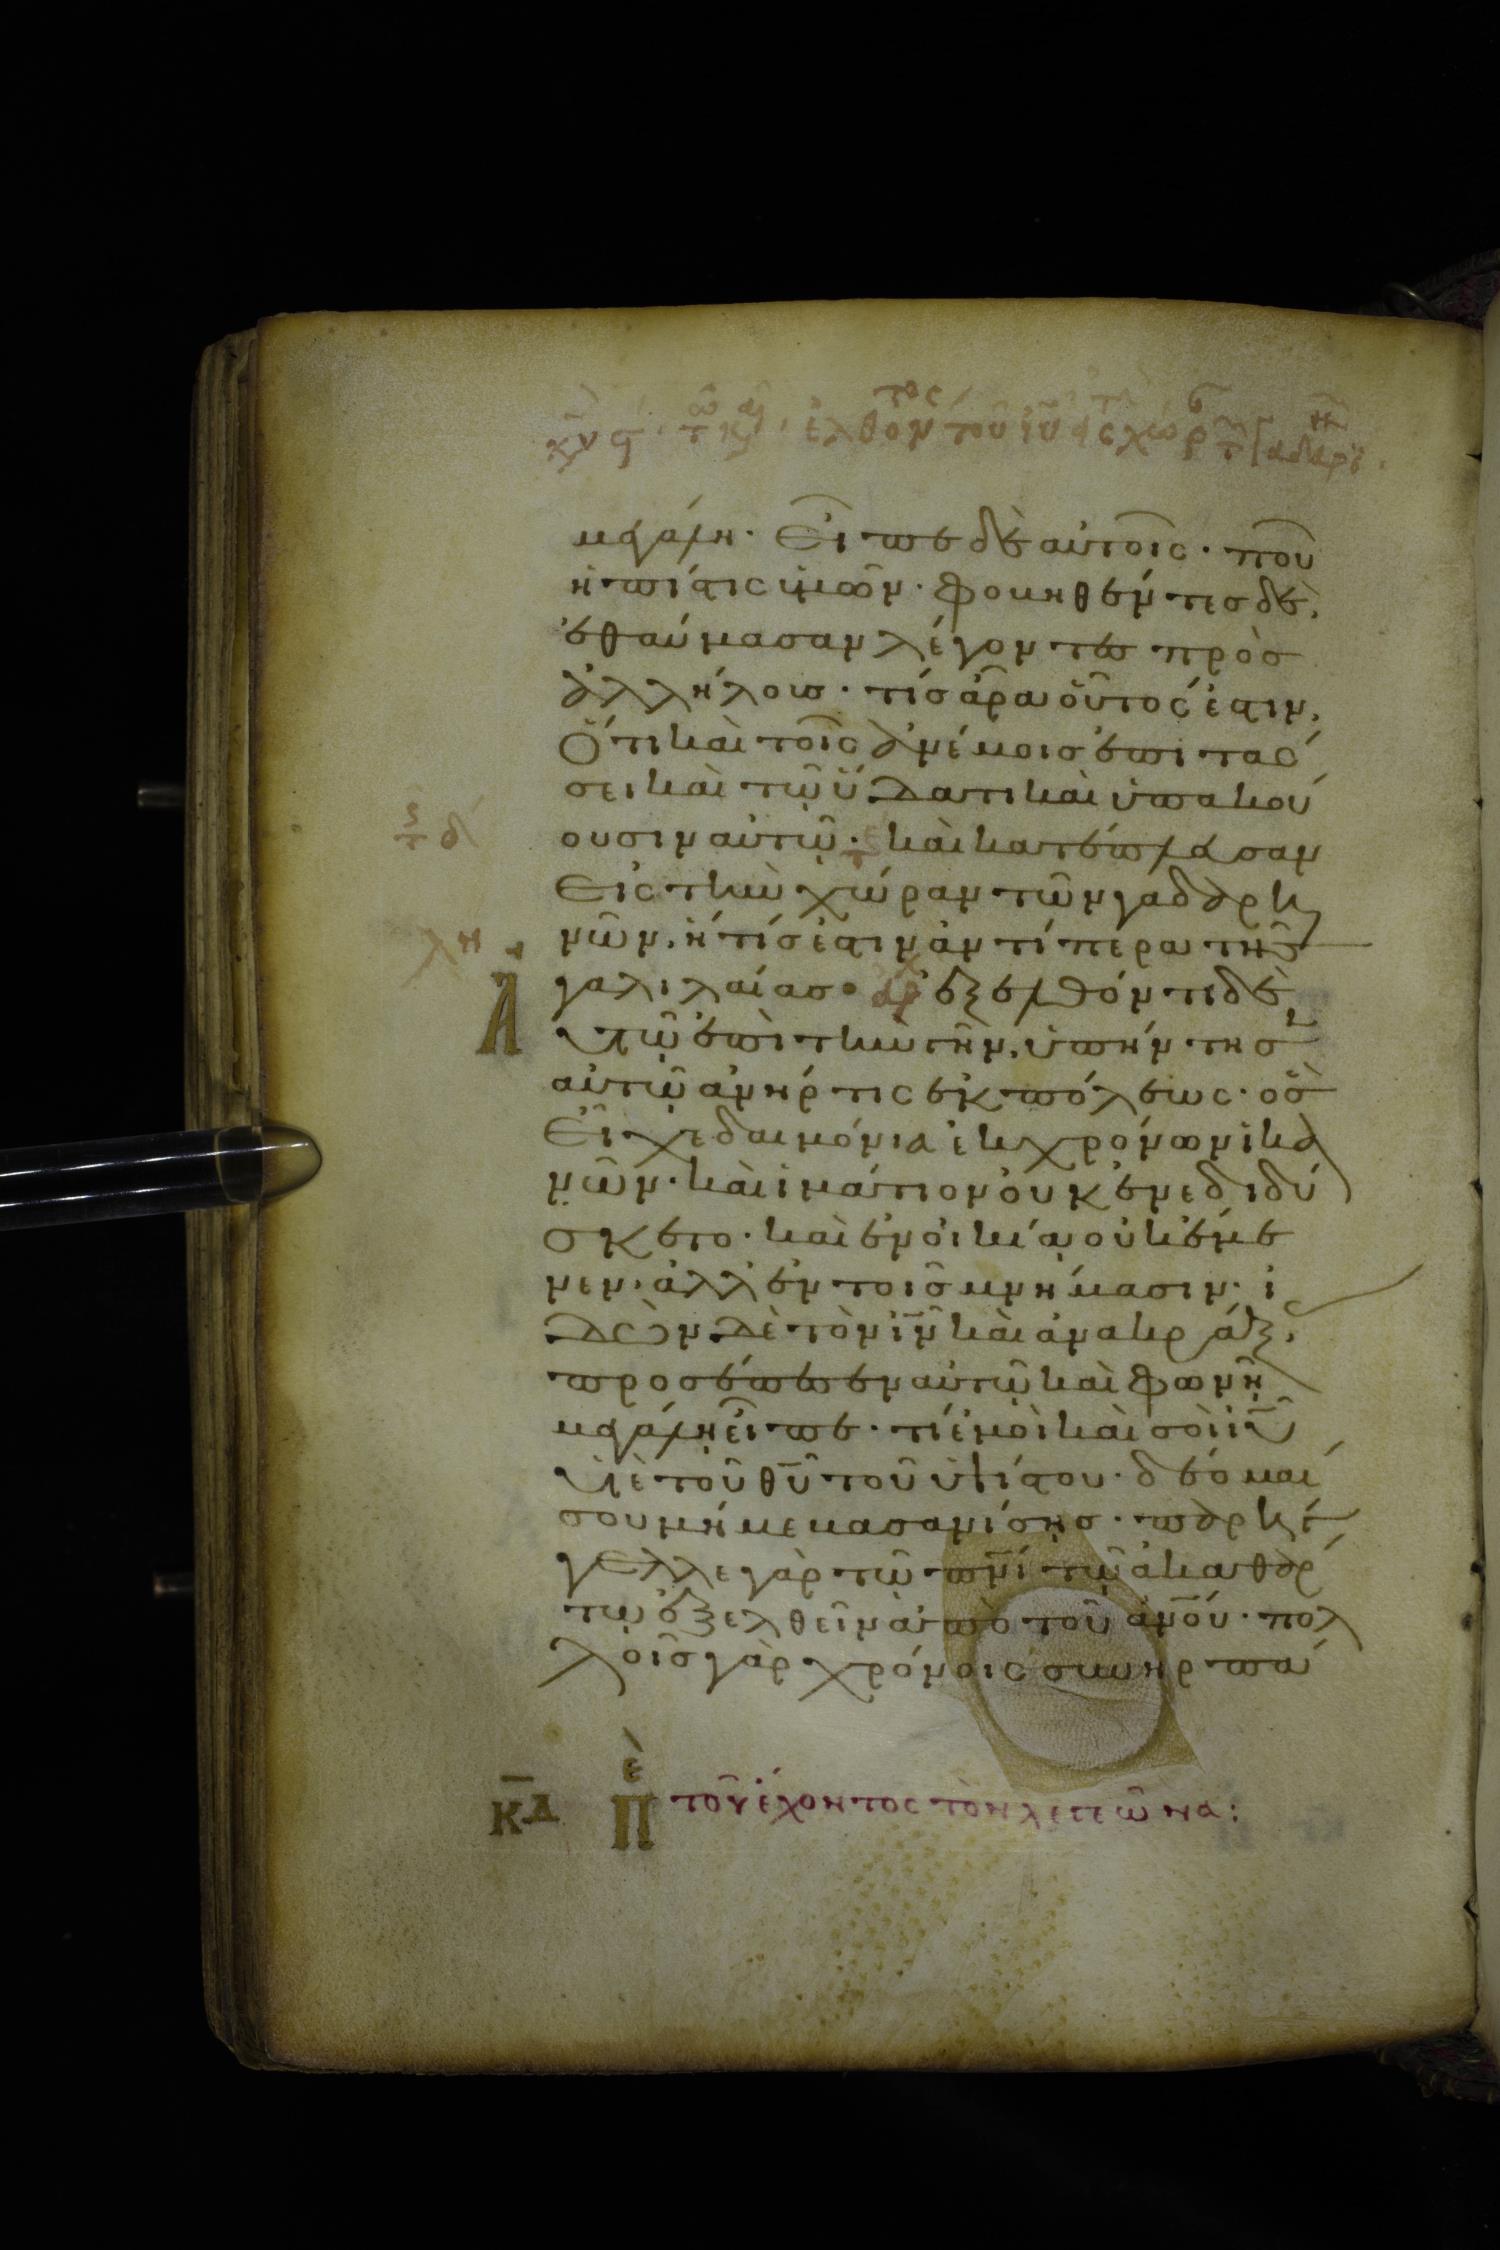 μεγάλη. Εἶπε δὲ αὐτοῖς. ποῦ
ἡ πίστις ὑμῶν. φοβηθέντες δὲ,
ἐθαύμασαν λέγοντες πρὸς
ἀλλήλους. τίς ἄρα οὗτός ἐστιν,
Ὅτι καὶ τοῖς ἀνέμοις ἐπιτάσ
σει καὶ τῷ ὕδατι καὶ ὑπακού
ουσιν αὐτῷ. καὶ κατέπλευσαν
Εἰς τὴν χώραν τῶν γαδαρη
νῶν, ἥτις ἐστιν ἀντίπερα τῆς
γαλιλαίας. ἐξελθόντι δὲ
Αὐτῷ ἐπὶ τὴν γῆν, ὑπήντησεν
αὐτῷ ἀνήρ τις ἐκ πόλεως. ὃς
Εἶχε δαιμόνια ἐκ χρόνων ἱκα
νῶν. καὶ ἱμάτιον οὐκ ἐνεδιδύ
σκετο. καὶ ἐν οἰκίᾳ οὐκ ἔμε
νεν. ἀλλ' ἐν τοῖς μνήμασιν. ἰ
δὼν δὲ τὸν ἰν καὶ ἀνακράξας,
προσέπεσεν αὐτῷ καὶ φωνῇ
μεγάλῃ εἶπε. τί ἐμοὶ καὶ σοὶ ἰυ
υἱὲ τοῦ θυ τοῦ ὑψίστου. δέομαί
σου μή με βασανίσῃς. παρήγ
γελλε γὰρ τῷ πνι τῷ ἀκαθάρ
τῳ ἐξελθεῖν ἀπὸ τοῦ ἀνου. πολ
λοῖς γὰρ χρόνοις συνηρπά
ΚΔ Πὲ τοῦ ἔχοντος τὸν λεγεῶνα: